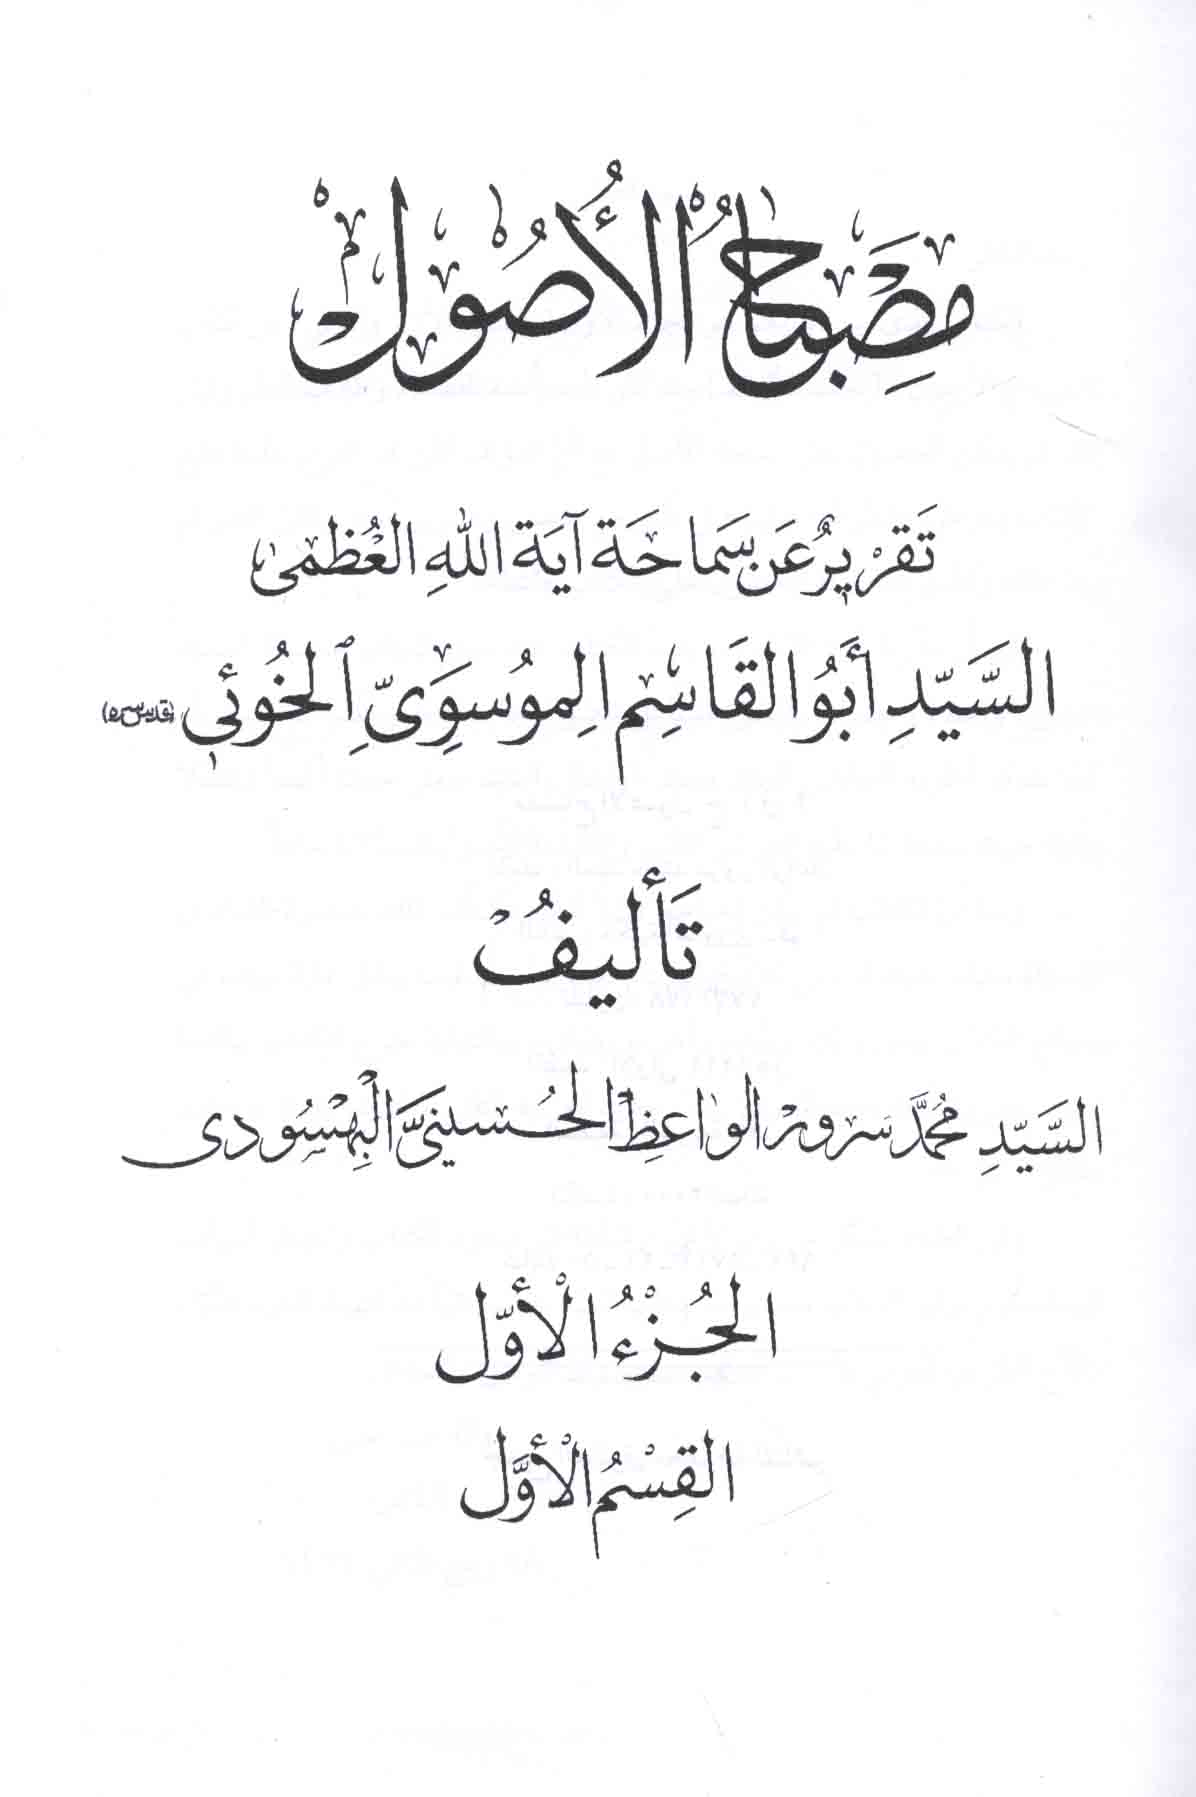 مِصْبَاحُ الأُصُول
تَقْرِيرٌ عَن سَمَاحَة آيَة اللهِ العُظمىٰ
السَّيّدِ أبُو القَاسِم المُوسَوِيّ الخُوئي (قدس سره)
تَأليفُ
السَّيّدِ مُحمَّد سَرور الواعِظ الحُسينيّ البِهْسُودي
الجُزْءُ الأوّل
القِسْمُ الأوَّل